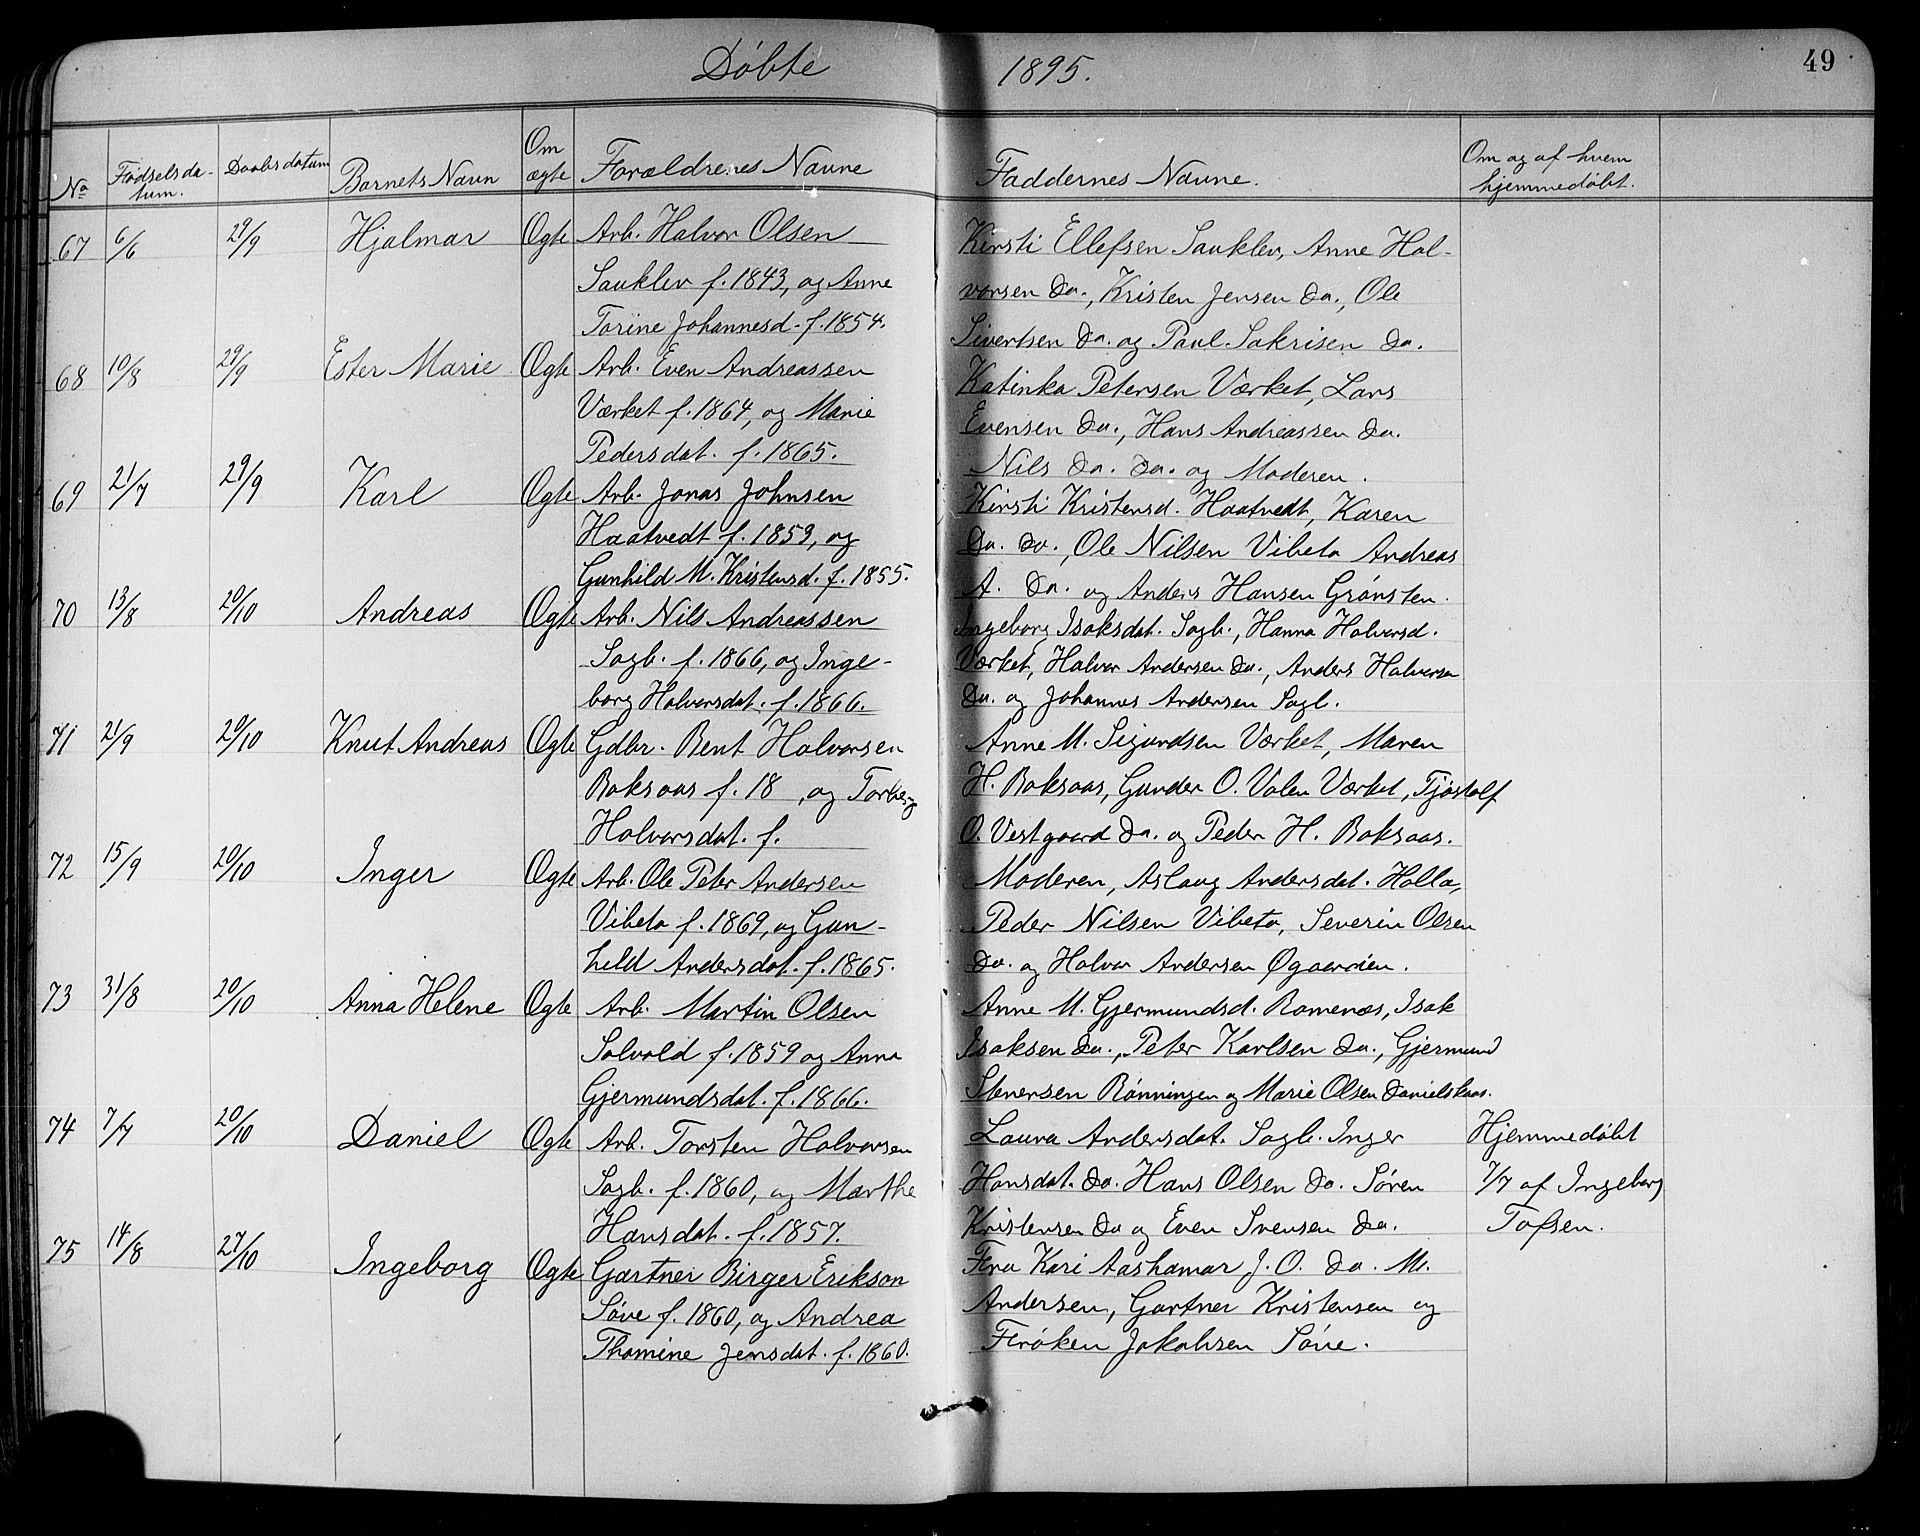 Døbte 1895. 49
No Fødselsda- tum. Daabsdatum Barnets Navn Om ægte Forældrenes Navne Faddernes Navne. Om og af hvem hjemmedøbt.
67 6/6 29/9 Hjalmar Ægte Arb. Halvor Olsen Kirsti Ellefsen Sauklev, Anne Hal-
Sauklev f. 1843, og Anne vorsen Do., Kristen Jensen Do., Ole
Torine Johannesd. f. 1854. Sivertsen Do. og Paul Sakrisen Do.
68 10/8 29/9 Ester Marie Ægte Arb. Even Andreassen Katinka Petersen Værket, Lars
Værket f. 1864, og Marie Evensen Do., Hans Andreassen Do.
Pedersdat. f. 1865. Nils Do. Do. og Moderen.
69 21/7 29/9 Karl Ægte Arb. Jonas Johnsen Kirsti Kristensd. Haatvedt, Karen
Haatvedt f. 1859, og Do. Do., Ole Nilsen Vibeto Andreas
Gunhild M. Kristensd. f. 1855. A. Do. og Anders Hansen Grønsten.
70 13/8 20/10 Andreas Ægte Arb. Nils Andreassen Ingeborg Isaksdat. Sagb., Hanna Halvorsd.
Sagb. f. 1866, og Inge- Værket, Halvor Andersen Do., Anders Halvorsen
borg Halvorsdat. f. 1866. Do. og Johannes Andersen Sagb.
71 21/9 20/10 Knut Andreas Ægte Gdbr. Bent Halvorsen Anne M. Sigurdsen Værket, Maren
Boksaas f. 18 , og Torberg H. Boksaas, Gunder O. Valen Værket, Tjøstolf
Halvorsdat. f. O. Vestgaard Do. og Peder H. Boksaas.
72 15/9 20/10 Inger Ægte Arb. Ole Peter Andersen Moderen, Aslaug Andersdat. Holla,
Vibeto f. 1869, og Gun- Peder Nilsen Vibeto, Severin Olsen
hild Andersdat. f. 1865. Do. og Halvor Andersen
73 31/8 20/10 Anna Helene Ægte Arb. Martin Olsen Anne M. Gjermundsd. Romenæs, Isak
Solvold f. 1859 og Anna Isaksen Do., Peter Karlsen Do., Gjermund
Gjermundsdat. f. 1866. Stenersen Rønningen og Marie Olsen Danielskaas.
74 7/7 20/10 Daniel Ægte Arb. Torsten Halvorsen Laura Andersdat. Sagb. Inger Hjemmedøbt
Sagb. f. 1860, og Marthe Hansdat. Do. Hans Olsen Do. Søren 7/7 af Ingeborg
Hansdat. f. 1857. Kristensen Do og Even Svensen Do. Tofsen.
75 14/8 27/10 Ingeborg Ægte Gartner Birger Erikson Fru Kari Aashamar J. O. Do. M.
Søve f. 1860, og Andrea Andersen, Gartner Kristensen og
Thomine Jensdat. f. 1860. Frøken Jakobsen Søve.